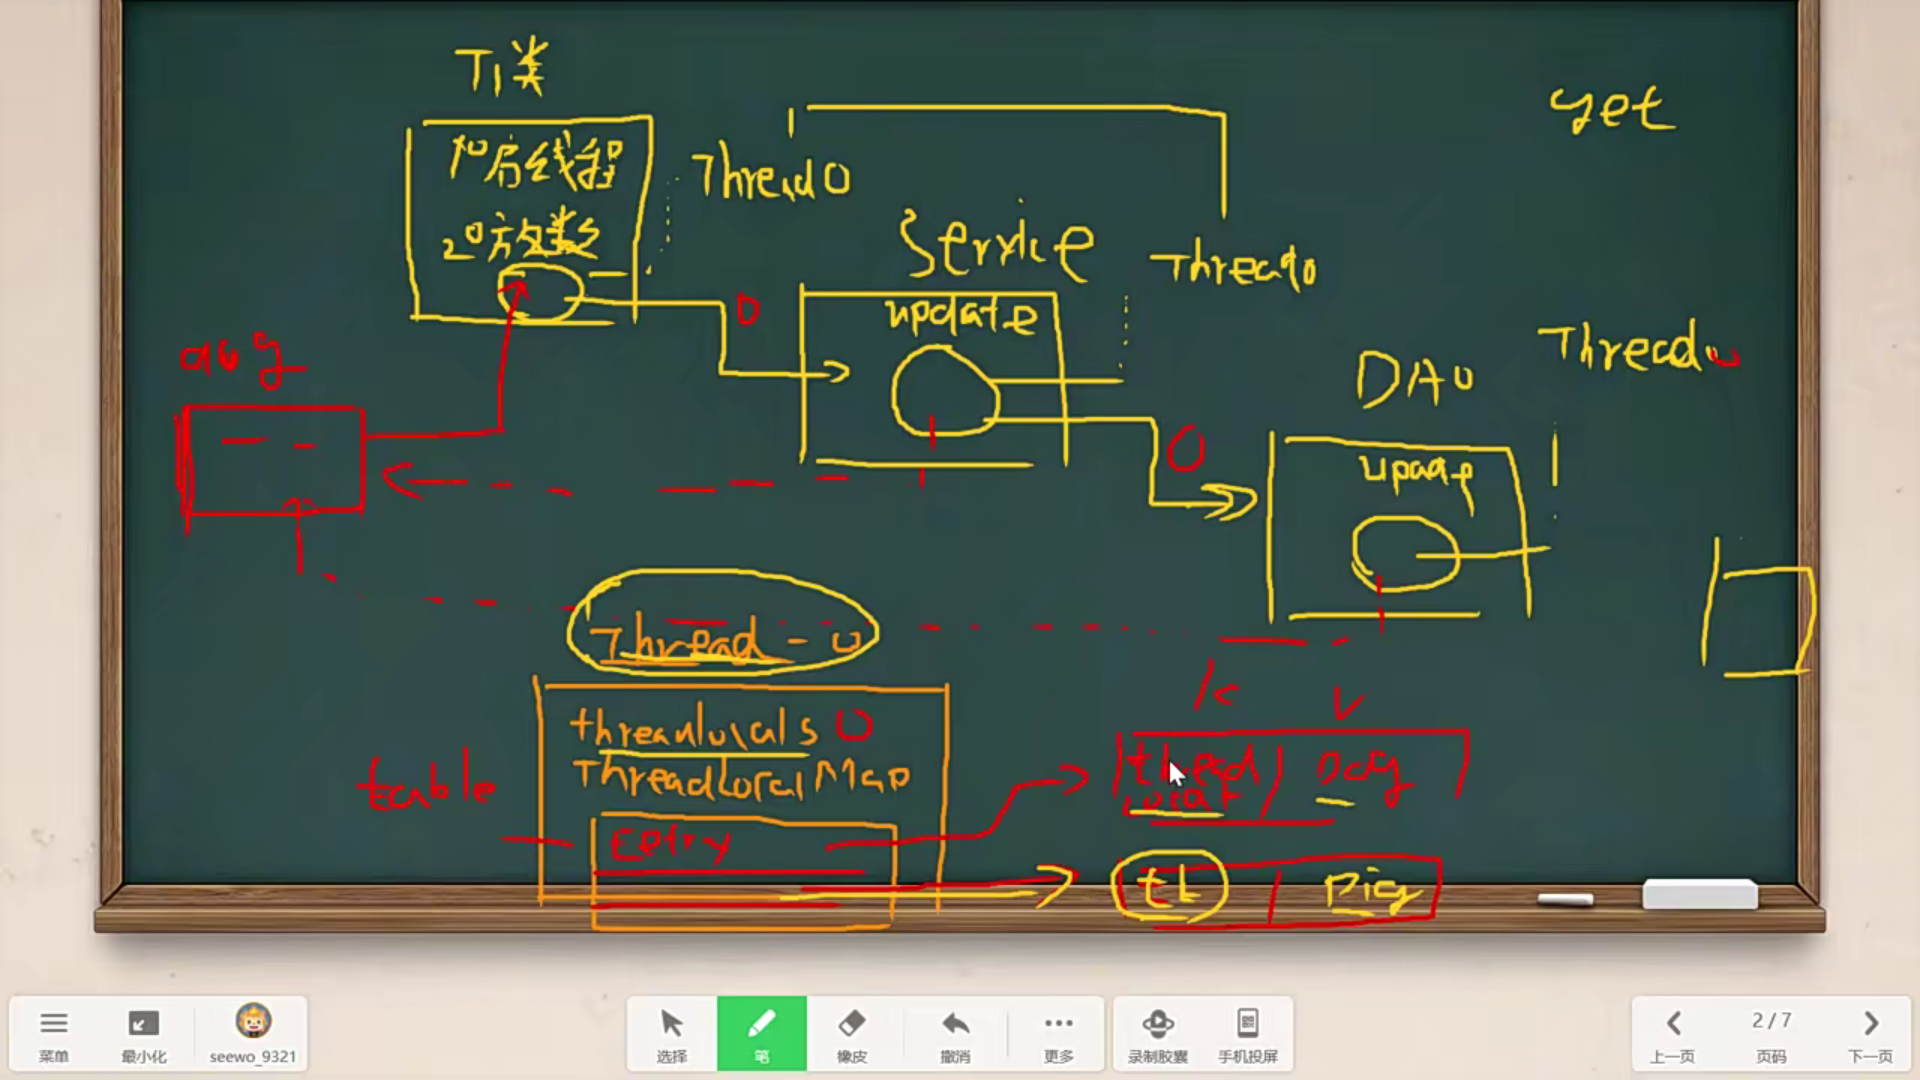 T1类
get
1°启线程
Thread0
2°放数
Service
Thread0
update
0
Thread0
DAO
update
0
Thread-0
K
V
threadlocals 0
ThreadLocalMap
table
thread
local
Dog
Entry
tL
Pig
菜单
最小化
seewo_9321
选择
笔
橡皮
撤消
更多
录制胶囊
手机投屏
上一页
2/7
页码
下一页